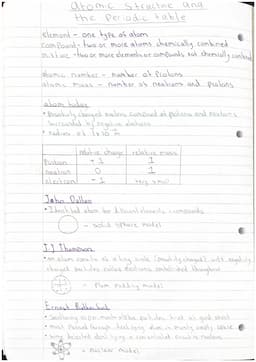 Atomic Structure and
the Periodic table
element - one type of atom
compound - two or more atoms chemically combined
mixture - two or more elements or compounds not chemically combined
atomic number - number of protons
atomic mass - number of neutrons and protons
atom today
• Positively charged nucleus composed of protons and neutrons
surrounded by negative electrons
• radius of 1 x 10
relative charge relative mass
Proton +1 1
neutron 0 1
electron -1 very small
John Dalton
• Identified atom for different elements + compounds
- solid sphere model
JJ Thompson
• an atom consists of a big whole (positively charged) with negatively
charged particles called electrons embedded throughout
- Plum pudding model
Ernest Rutherford
• scattering experiment alpha particles fired at gold sheet
• most passed through declaring atom is mostly empty space
• some deflected declaring a concentrated positive nucleus
- nuclear model